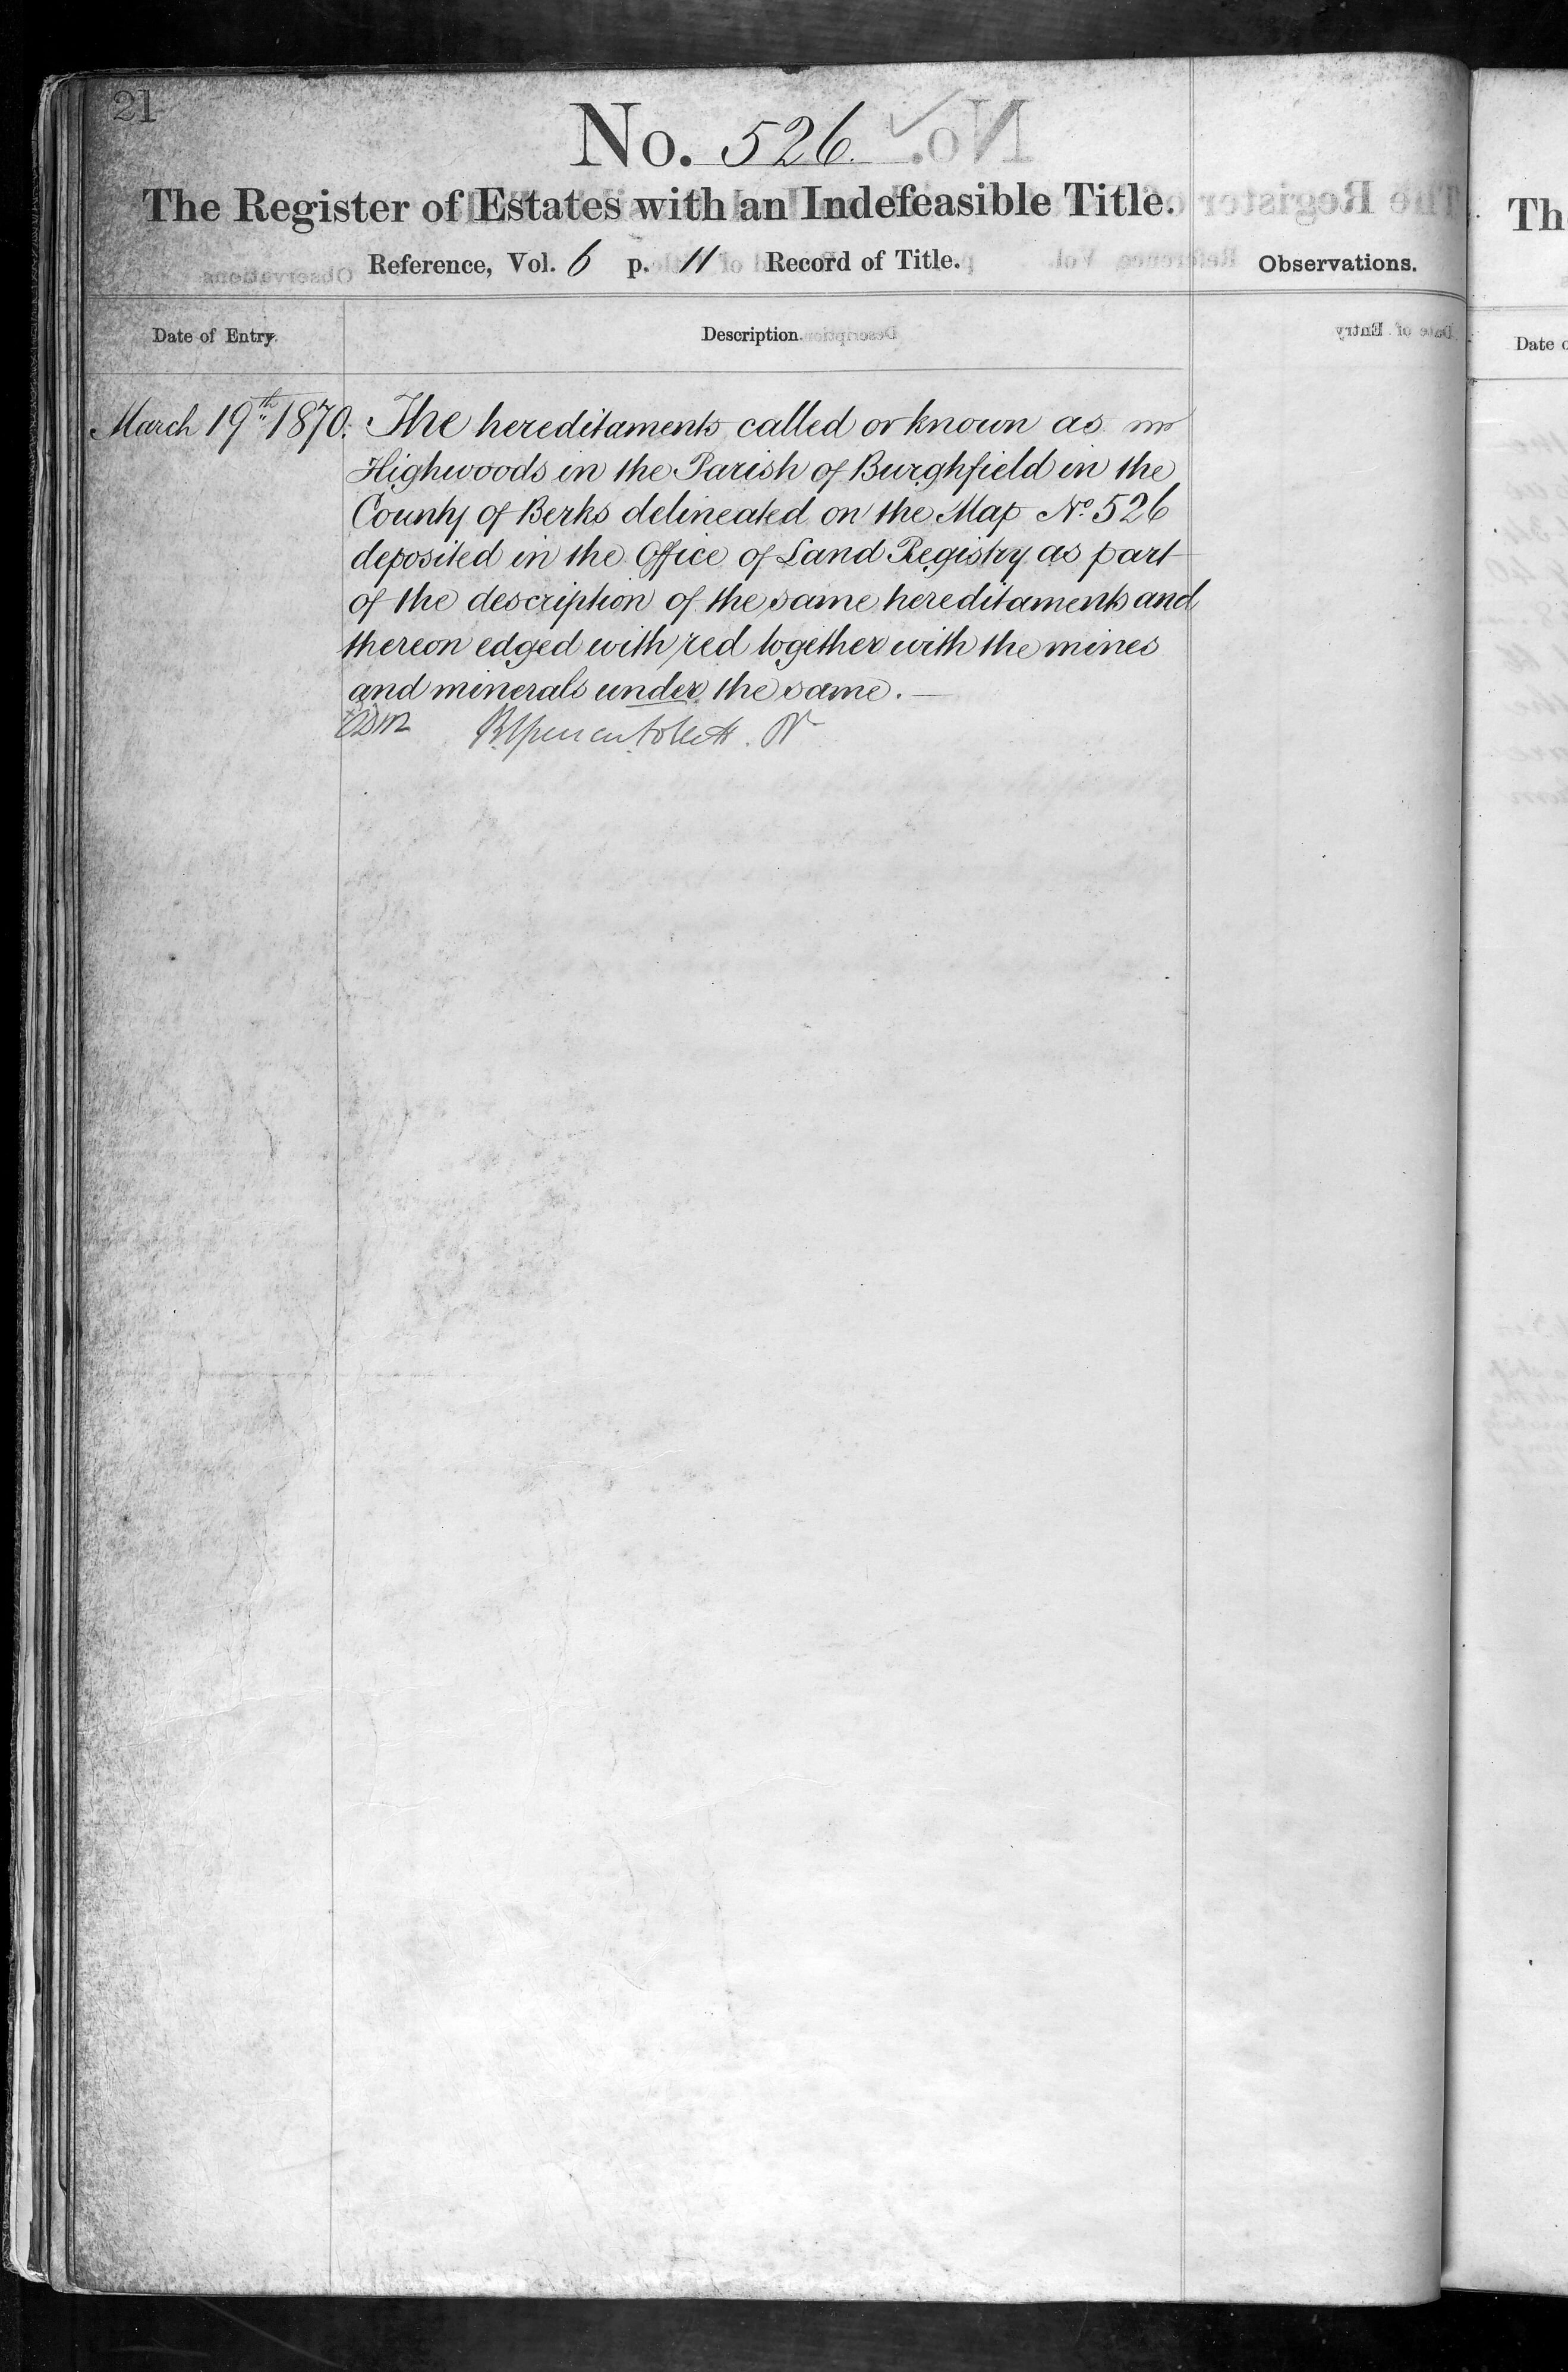 21
No. 526.
The Register of Estates with an Indefeasible Title.
Reference, Vol. 6 p. 11 Record of Title.
Observations.
Date of Entry.
Description.
March 19th 1870.
The hereditaments called or known as
Highwoods in the Parish of Burghfield in the
County of Berks delineated on the Map No. 526
deposited in the Office of Land Registry as part
of the description of the same hereditaments and
thereon edged with red together with the mines
and minerals under the same. —
Th
Date o